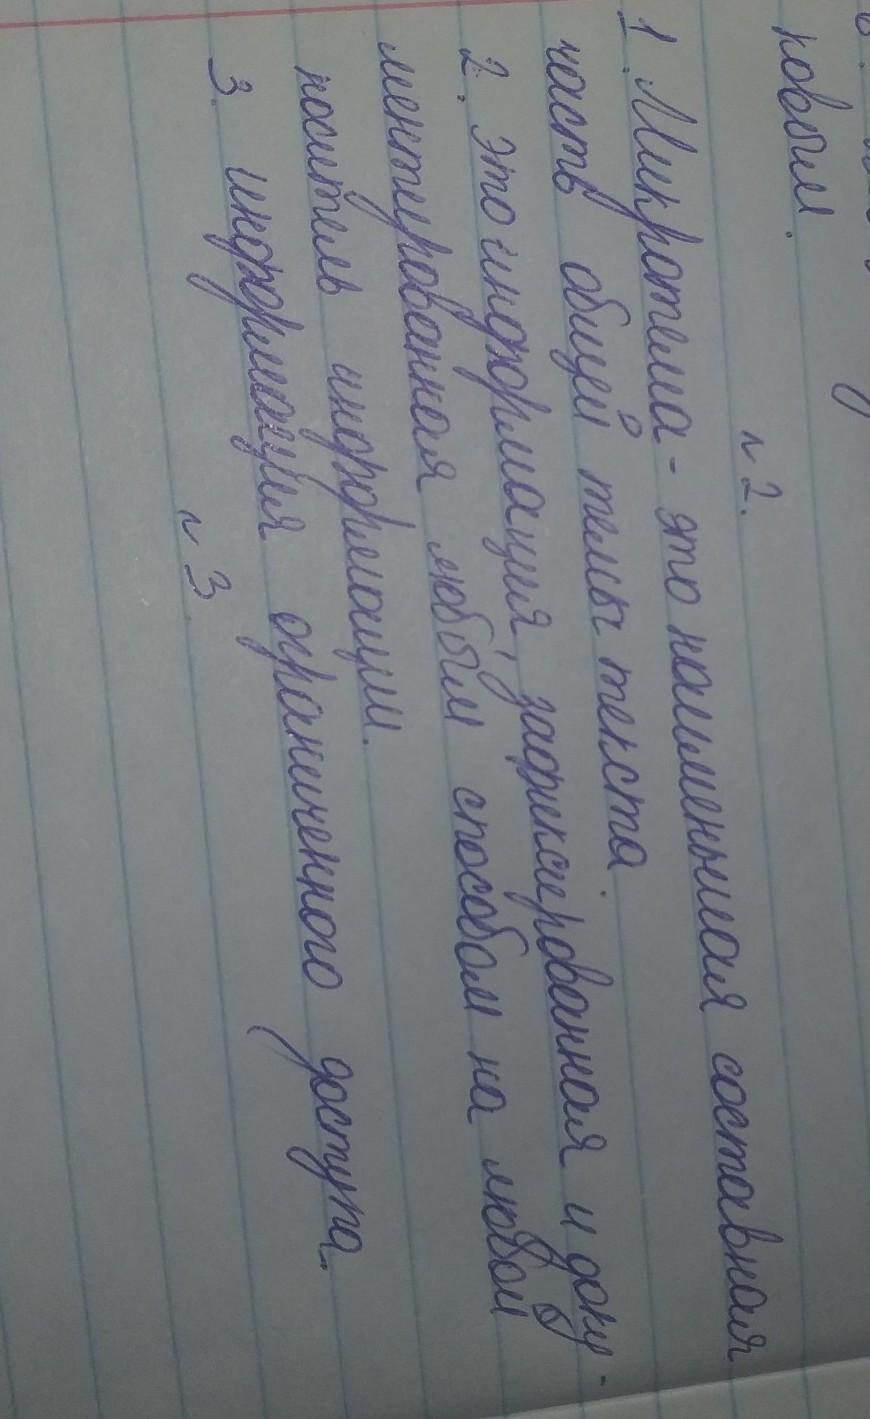 новым.
n 2.
1. Микротема - это наименьшая составная
часть общей темы текста.
2. это информация, зафиксированная и доку-
ментированная любым способом на любой
носитель информации.
3. информация ограниченного доступа.
n 3